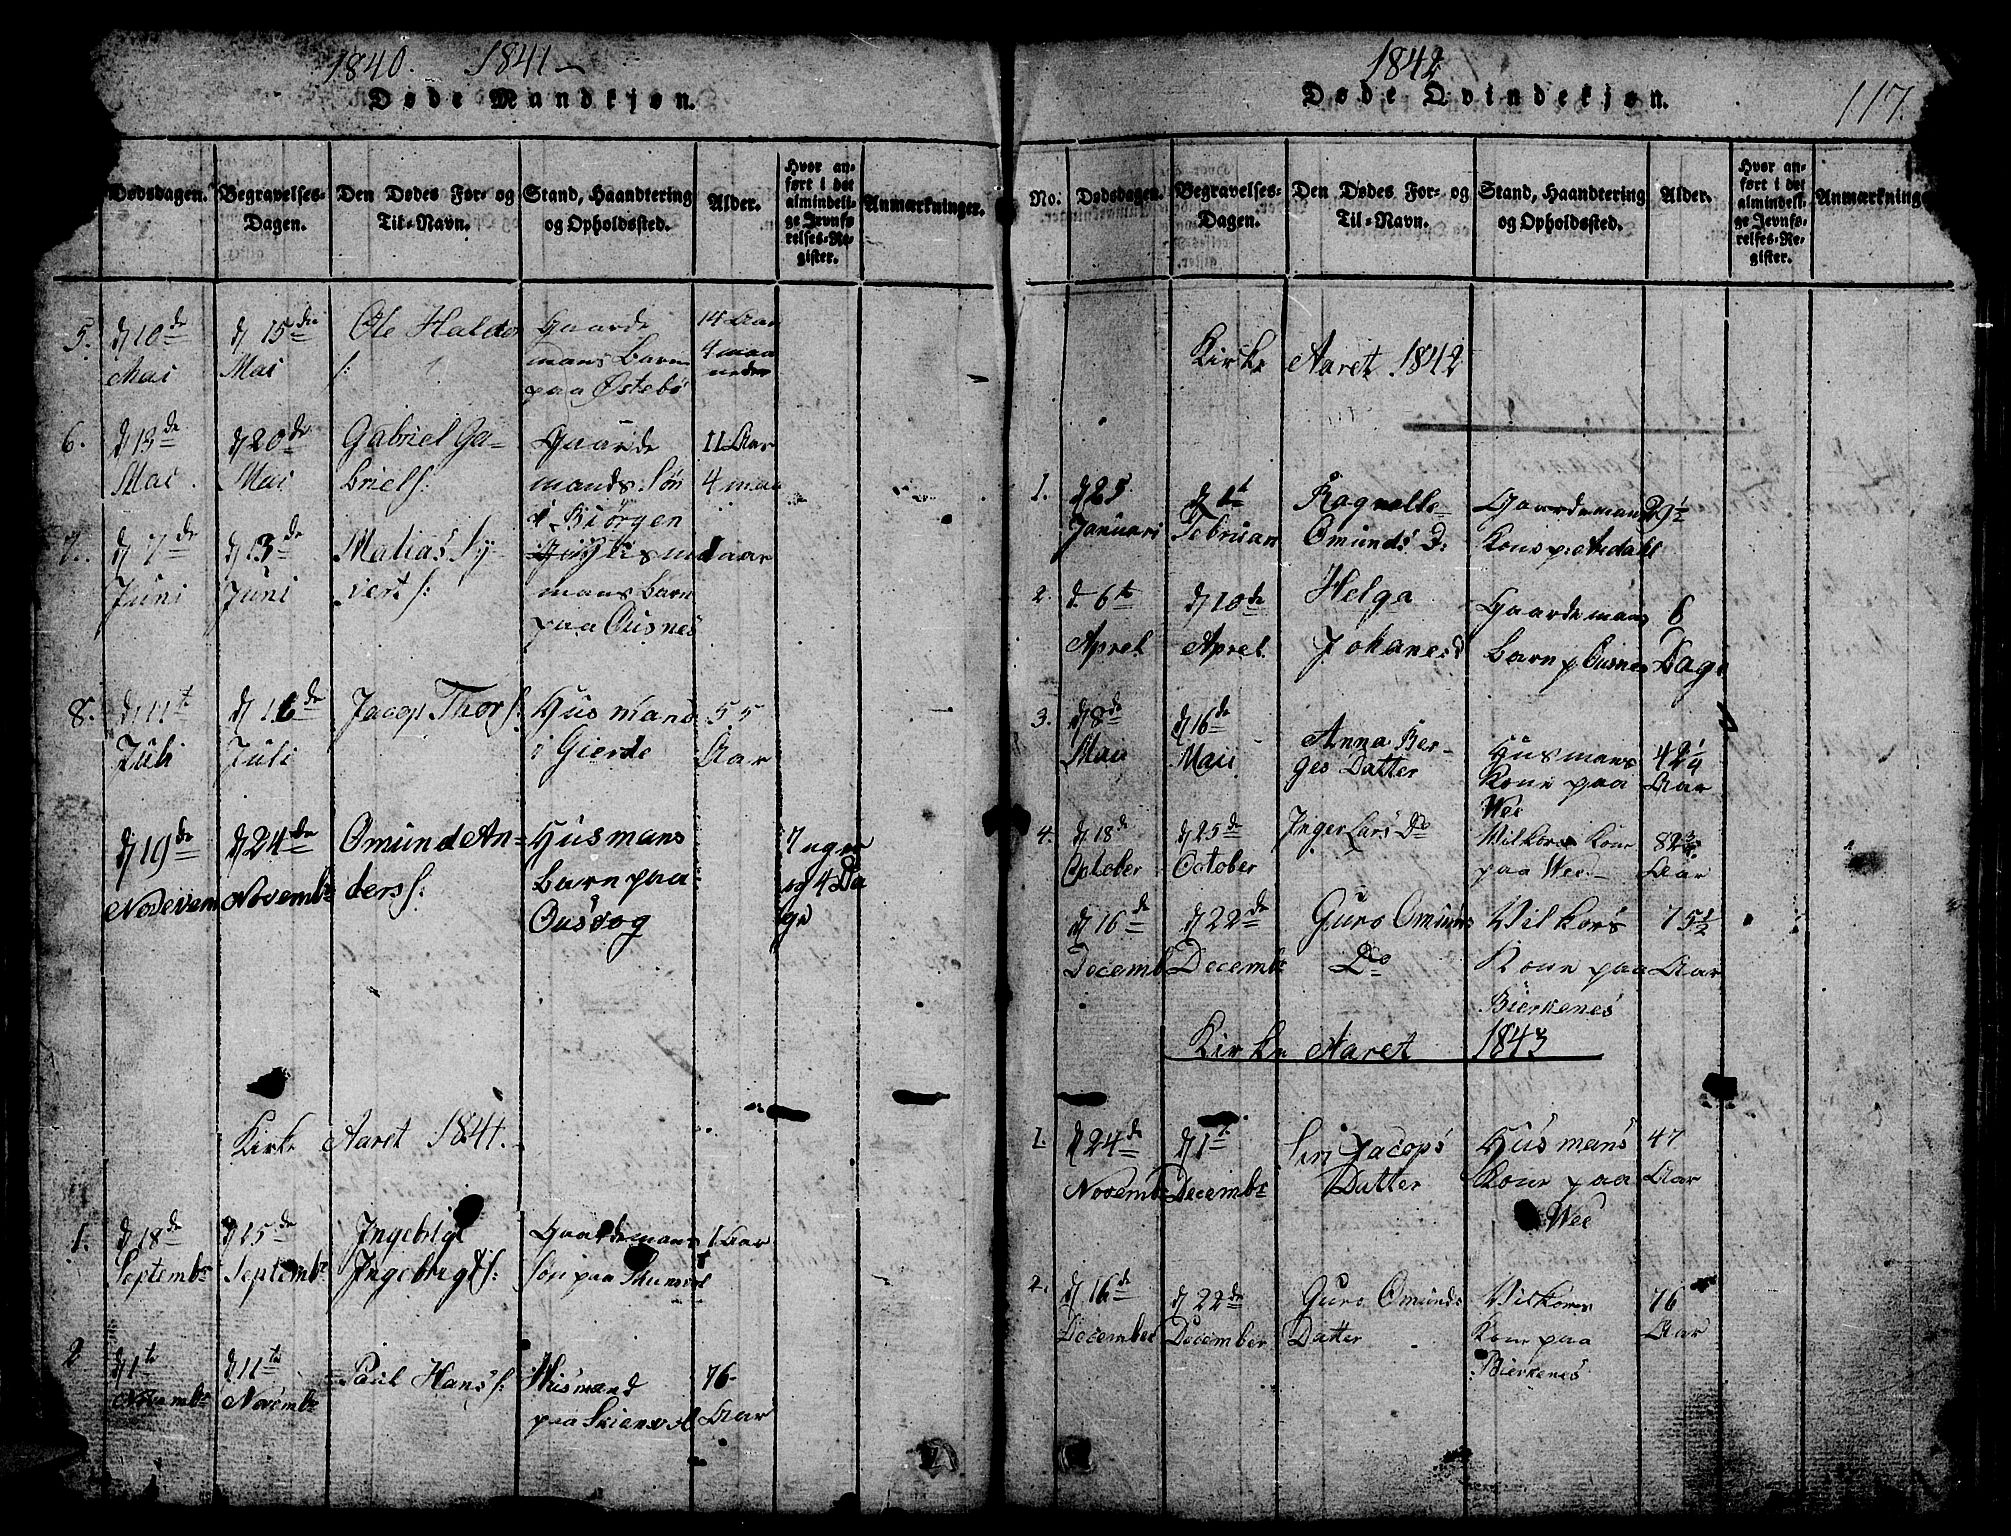 1840. 1841 –
Døde Mandkjøn.
Dødsdagen. Begravelses-Dagen. Den Dødes For- og Til-Navn. Stand, Haandtering og Opholdssted. Alder. Hvor anført i det almindelige Jevnførelses-Register. Anmarkninger.
5. d 10de Mai
d 15de Mai
Ole Haldo
Gaarde
mans Barn
paa Østebö
14 Aar
4 maa
neder
6. d 13de Mai
d 20de Mai
Gabriel Ga-
briels:
Gaarde
mands Sön
i Biörgen
11 Aar
4 maa
7. d 7de Juni
d 13de Juni
Matias Sy-
verts:
mans Barn
paa Ousnes
1 aar
8. d 11t Juli
d 16de Juli
Jacop Thors:
Husmand
i Gierde
55
Aar
d 19de
d 24de
Novembr
Omund An-
ders:
Husmans
Barn paa
Ousvog
7 uger
og 4 Da
ge
Kirke Aaret 1841.
1. d 18de Septembr
d 15de Septembr
Ingebrigt
Ingebrigts:
Gaardemans
Sön paa
1 Aar
2 d 1te Novembr
d 11te Novembr
Paul Hans:
Husmand
paa
76
Aar
1842
Døde Qvindekjøn.
117.
No. Dødsdagen. Begravelses-Dagen. Den Dødes For- og Til-Navn. Stand, Haandtering og Opholdssted. Alder. Hvor anført i det almindelige Jevnførelses-Register. Anmærkninge
Kirke Aaret 1842
1. d 25 Januari
d 1t Februar
Ragnelle
Omunds D:
Gaardemans
Kone p:
29½
2. d. 6te Aprel
d 10de Aprel
Helga
Johanes d
Gaardemans
Barn p Ousnes
6
Dage
3. d 8de Maii
d 16de Maii
Anna Ber-
ges Datter
Husmans
Kone paa
Wee
42¼
Aar
4. d 18de October
d 25de October
Inger Lars Dr
Vilkors Kone
paa Wee
82
Aar
d 16de Decemb
d 22de Decembr
Guro Omunds
Dr
Vilkors
Kone paa
Bierkenes
75½
Aar
Kirke Aaret 1843
1. d 24de Novembr
d 1t Decembr
Siri Jacops
Datter
Husmans
Kone paa
Wee
47
Aar
2. d 16de December
d 22de December
Guro Omunds
Datter
Vilkors
Kone paa
Bierkenes
76
Aar